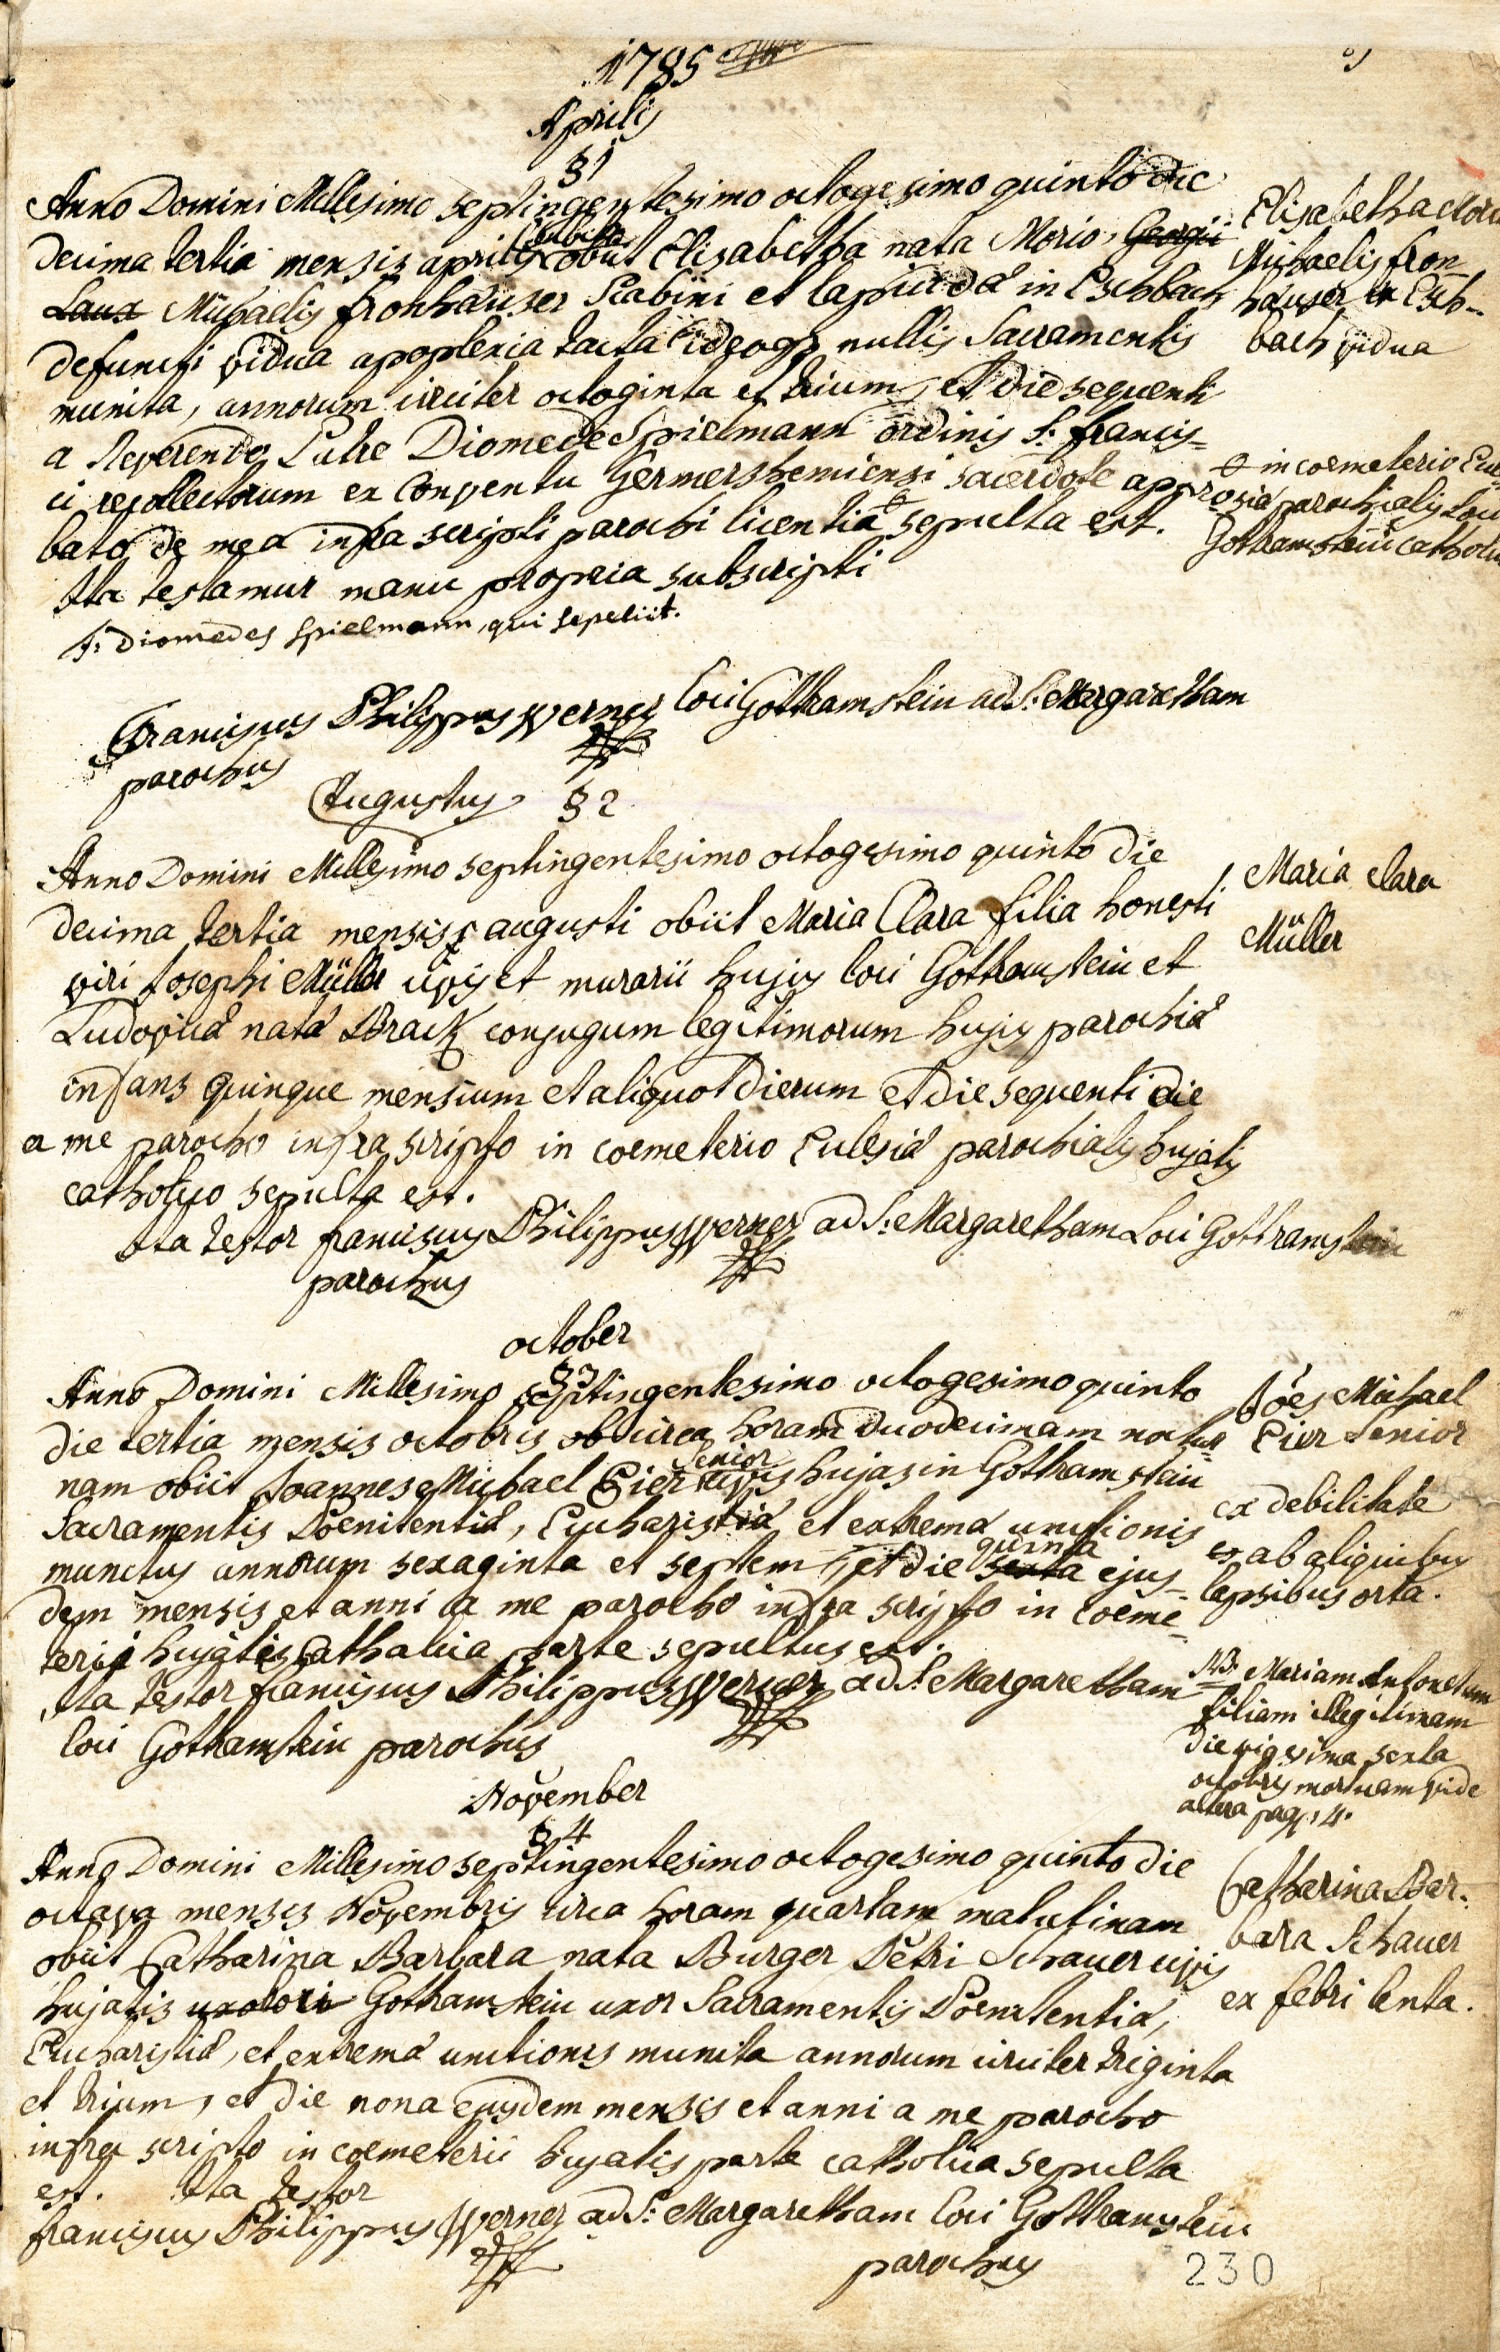 1785
Aprilis
§ 1
Anno Domini Millesimo septingentesimo octogesimo quinto die
decima tertia mensis aprilis subita obiit Elisabetha nata Morio, Georgii
Laux Michaelis fronhäuser Scabini et lapicida in Eschbach
defuncti vidua apoplexia tacta ideoq; nullis Sacramentis
munita, annorum circiter octoginta et trium, et die sequenti
a Reverendo Patre Diomede Spielmann ordinis S: Francis=
ci recollectorum ex Conventu Germershemiensi sacerdote appro
bato de mea infra scripti parochi licentiâ sepulta est.
Ita testamur manu propria subscripti
f: Diomedes Spielmann, qui sepeliit.
Elisabetha Mori
Michaelis fron=
häuser in Esch=
bach vidua
in coemeterio Eccle
siæ parochialis loci
Gothramstein catholic
Franciscus Philippus Werner loci Gothramstein ad S: Margaretham
parochus
Augustus § 2
Anno Domini Millesimo septingentesimo octogesimo quinto die
decima tertia mensis augusti obiit Maria Clara filia honesti
viri Josephi Müller civis et murarii hujus loci Gothramstein et
Ludovicâ natâ Brack conjugum legitimorum hujus parochiâ
infans quinque mensium et aliquot dierum et die sequenti die
a me parocho infra scripto in coemeterio Eclesiâ parochialis hujatis
catholico sepulta est.
Ita testor franciscus Philippus Werner ad S: Margaretham Loci Gothramstein
parochus
Maria Clara
Müller
october
§ 3
Anno Domini Millesimo septingentesimo octogesimo quinto
die tertia mensis octobris ob circa horam duodecimam noctur
nam obiit Joannes Michael Eier Senior civis hujas in Gothramstein
Sacramentis Poenitentiâ, Eucharistiâ et extremâ unctionis
munitus annorum sexaginta et septem, et die sexta quinta ejus=
dem mensis et anni a me parocho infra scripto in coeme=
terii hujatis Catholica parte sepultus est.
Ita testor franciscus Philippus Werner ad S: Margaretham
loci Gothramstein parochus
Jões Michael
Eier Senior
ex debilitate
ex ab aliquibus
lapsibus orta.
NB: Mariam Antonetam
filiam illegitimam
die vigesima sexta
octobris mortuam vide
altera pag: 4.
November
§ 4
Anno Domini Millesimo septingentesimo octogesimo quinto die
octava mensis Novembris circa horam quartam matutinam
obiit Catharina Barbara nata Burger Petri Schauer civis
hujatis Gothramstein uxor Sacramentis Poenitentiâ,
Eucharistiâ, et extremâ unctionis munita annorum circiter triginta
et trium, et die nona ejusdem mensis et anni a me parocho
infra scripto in coemeterii hujatis parte catholica sepulta
est. Ita testor
franciscus Philippus Werner ad S: Margaretham loci Gothramstein
parochus
Catharina Bar=
bara Schauer
ex febri lenta.
230